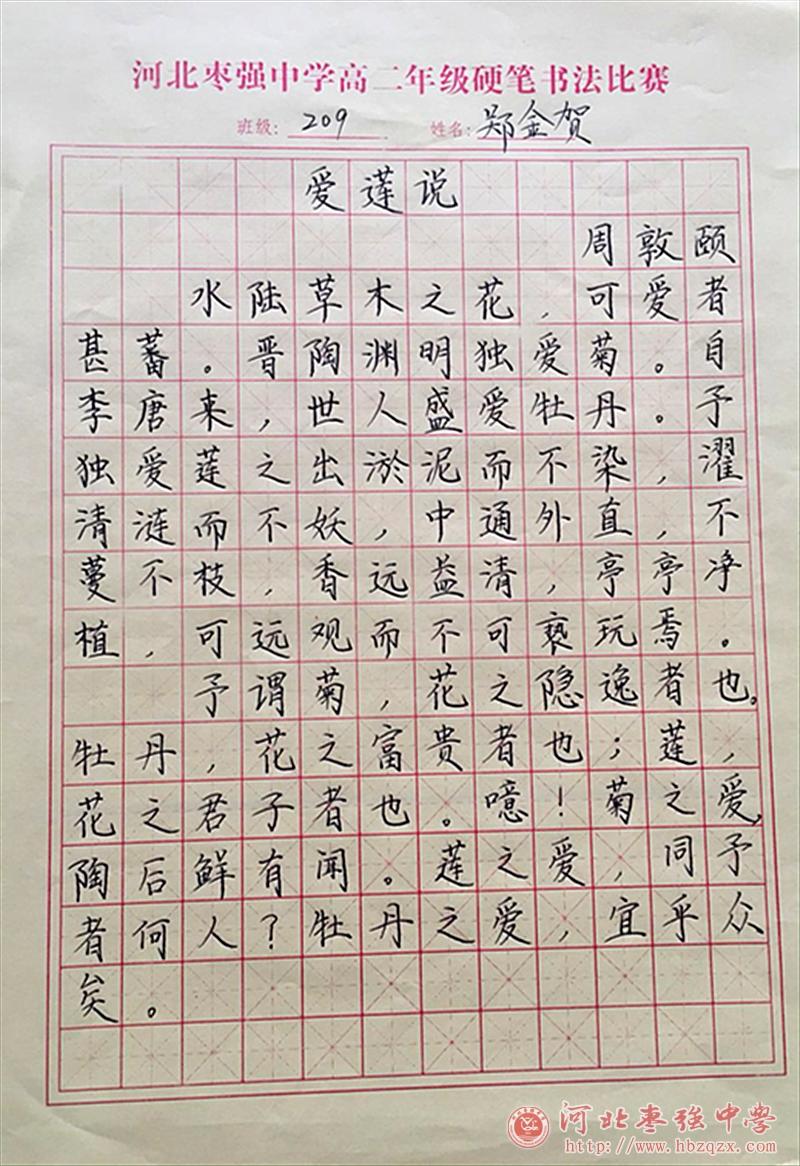 河北枣强中学高二年级硬笔书法比赛
班级: 209 姓名: 郑金贺
爱莲说
周敦颐
水陆草木之花，可爱者
甚蕃。晋陶渊明独爱菊。自
李唐来，世人盛爱牡丹。予
独爱莲之出淤泥而不染，濯
清涟而不妖，中通外直，不
蔓不枝，香远益清，亭亭净
植，可远观而不可亵玩焉。
予谓菊，花之隐逸者也。
牡丹，花之富贵者也；莲，
花之君子者也。噫！菊之爱，
陶后鲜有闻。莲之爱，同予
者何人？牡丹之爱，宜乎众
矣。
河北枣强中學
http://www.hbzqzx.com